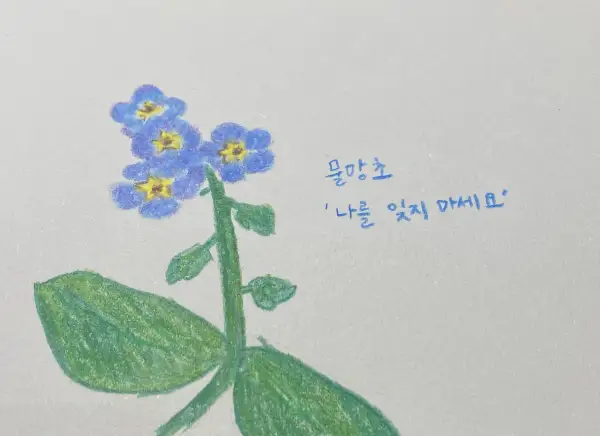 물망초
'나를 잊지 마세요'